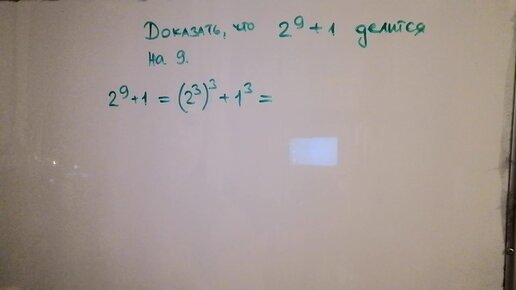 Доказать, что 2⁹ + 1 делится
на 9.
2⁹ + 1 = (2³)³ + 1³ =